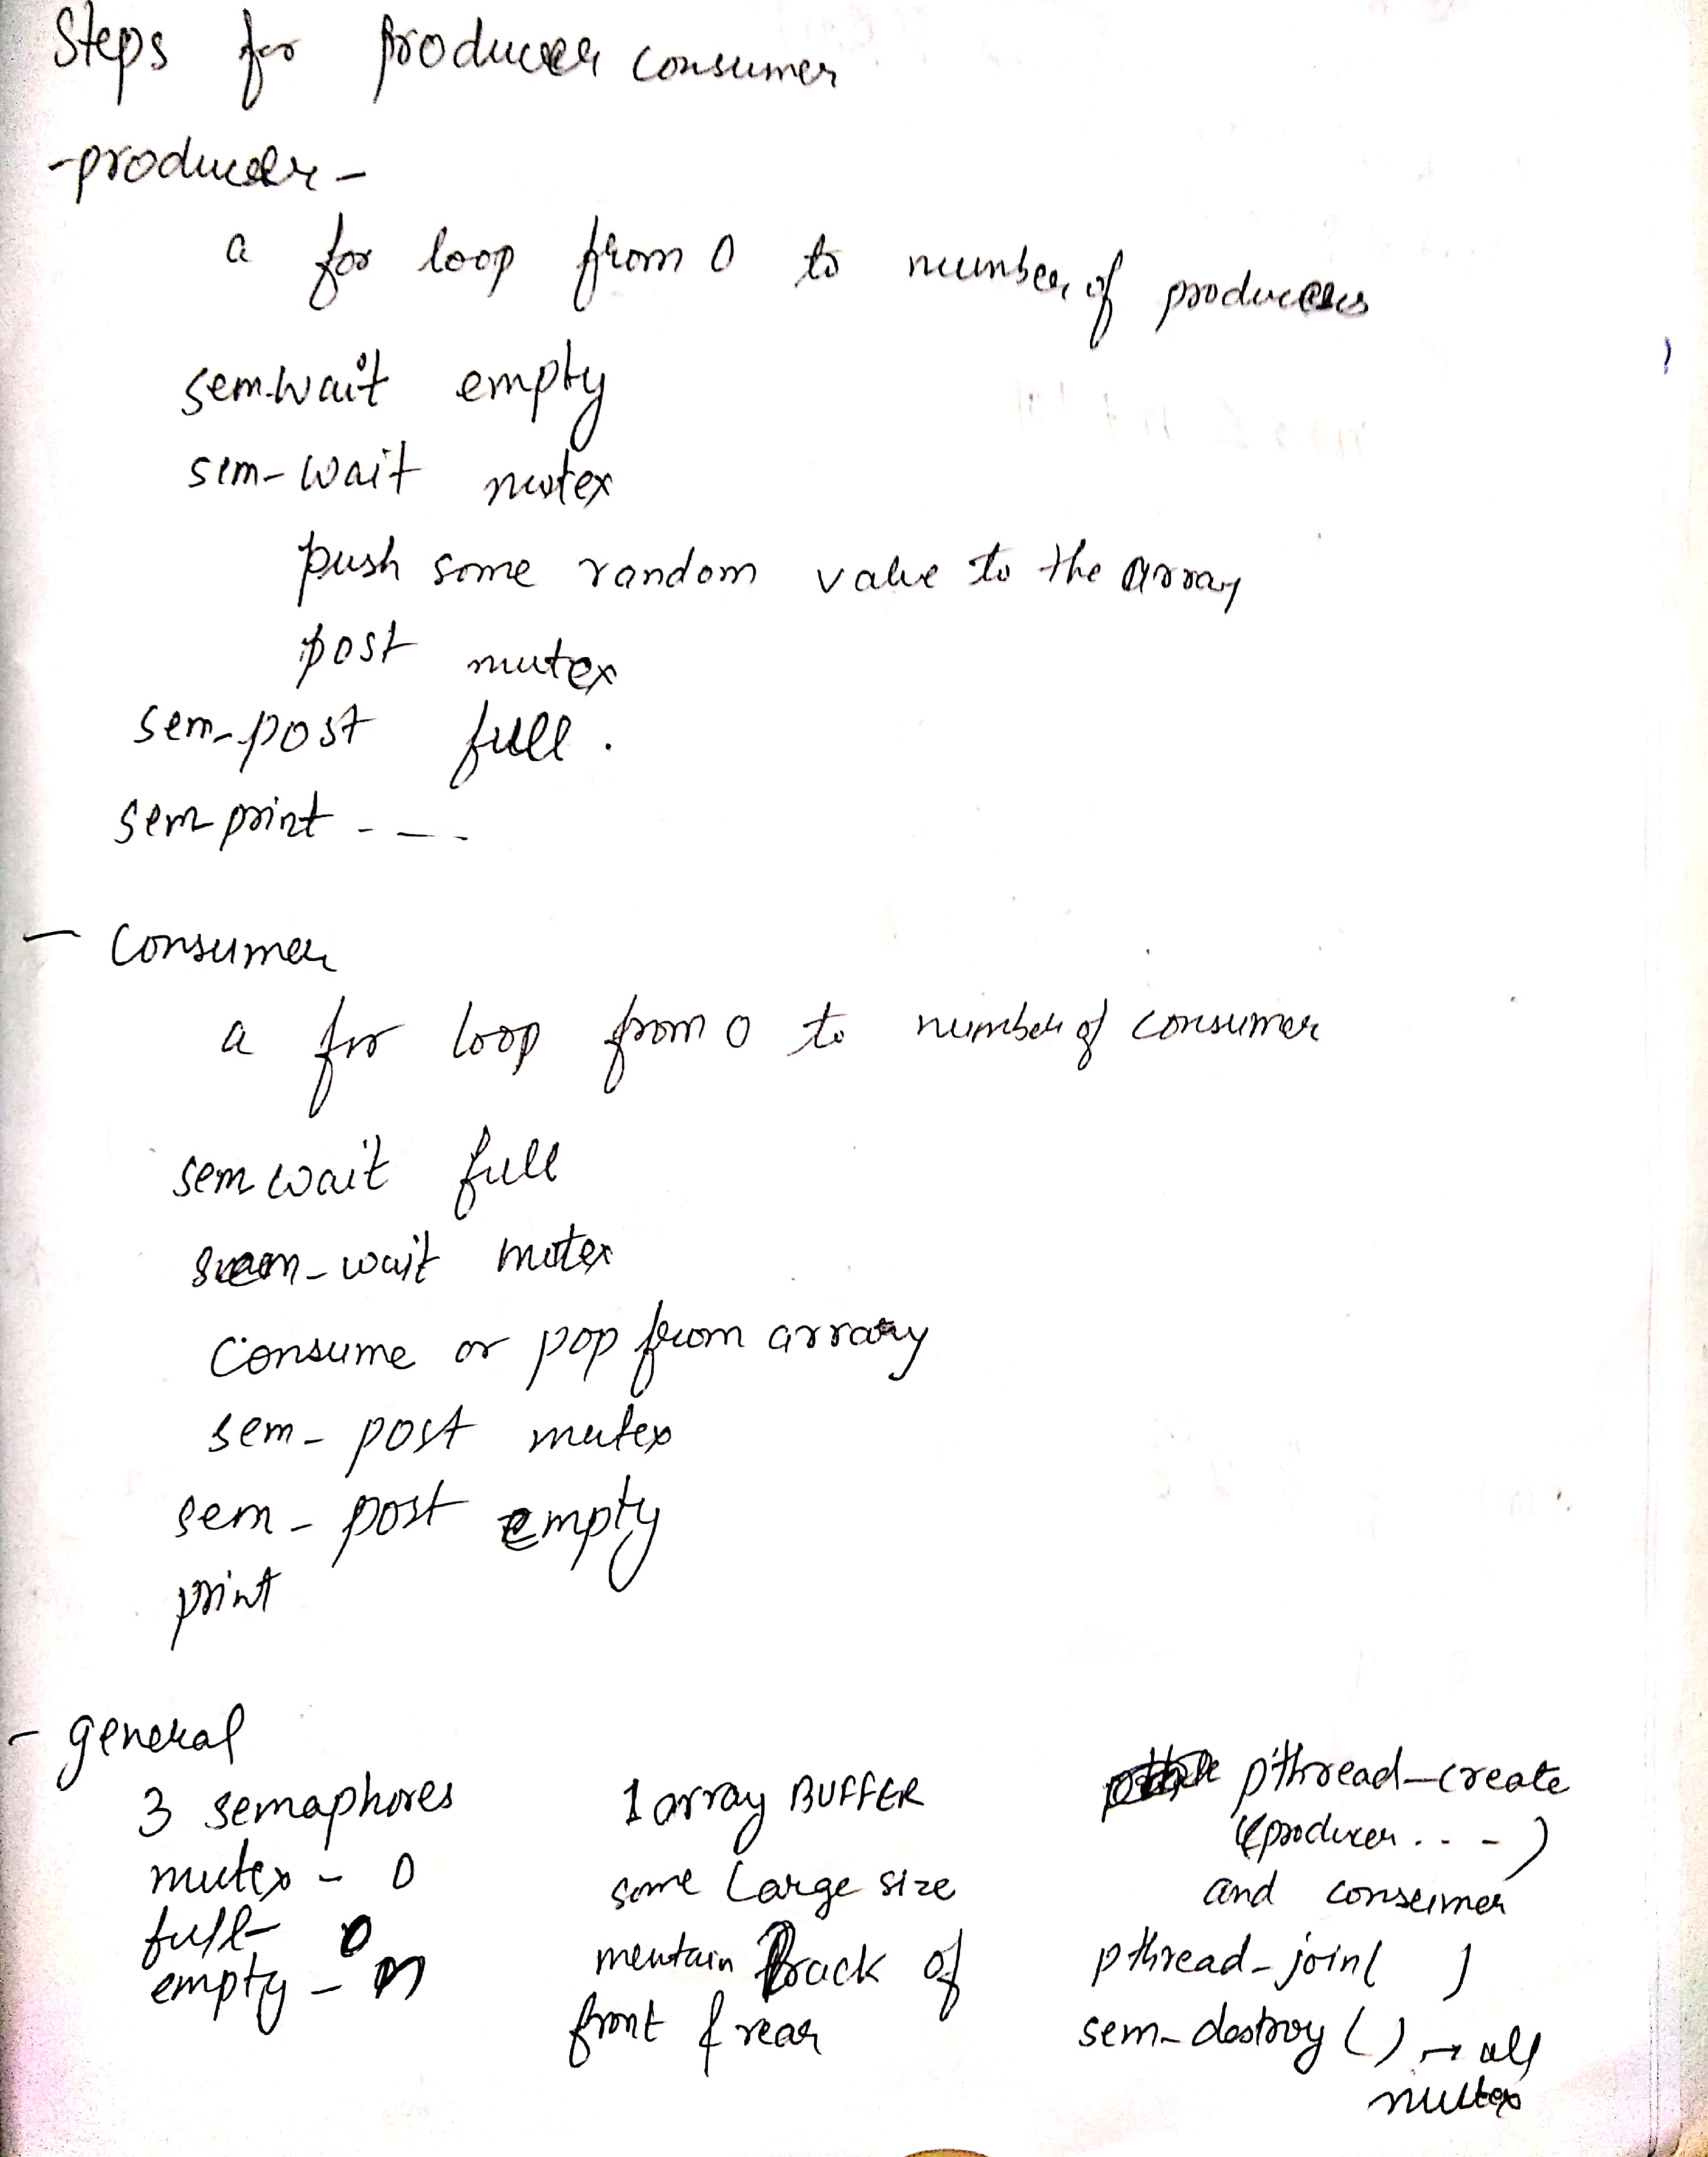 Steps for producer consumer
- producer -
a for loop from 0 to number of producers
sem-wait empty
sem-wait mutex
push some random value to the array
post mutex
sem-post full.
sem print - - -
- Consumer
a for loop from 0 to number of consumer
sem wait full
sem-wait mutex
Consume or pop from array
sem-post mutex
sem-post empty
print
- general
3 semaphores
mutex - 0
full - 0
empty - n
1 array BUFFER
some large size
mentain track of
front & rear
pthread-create
(producer . . . -)
and consumer
pthread-join( )
sem-destroy () → all
mutex